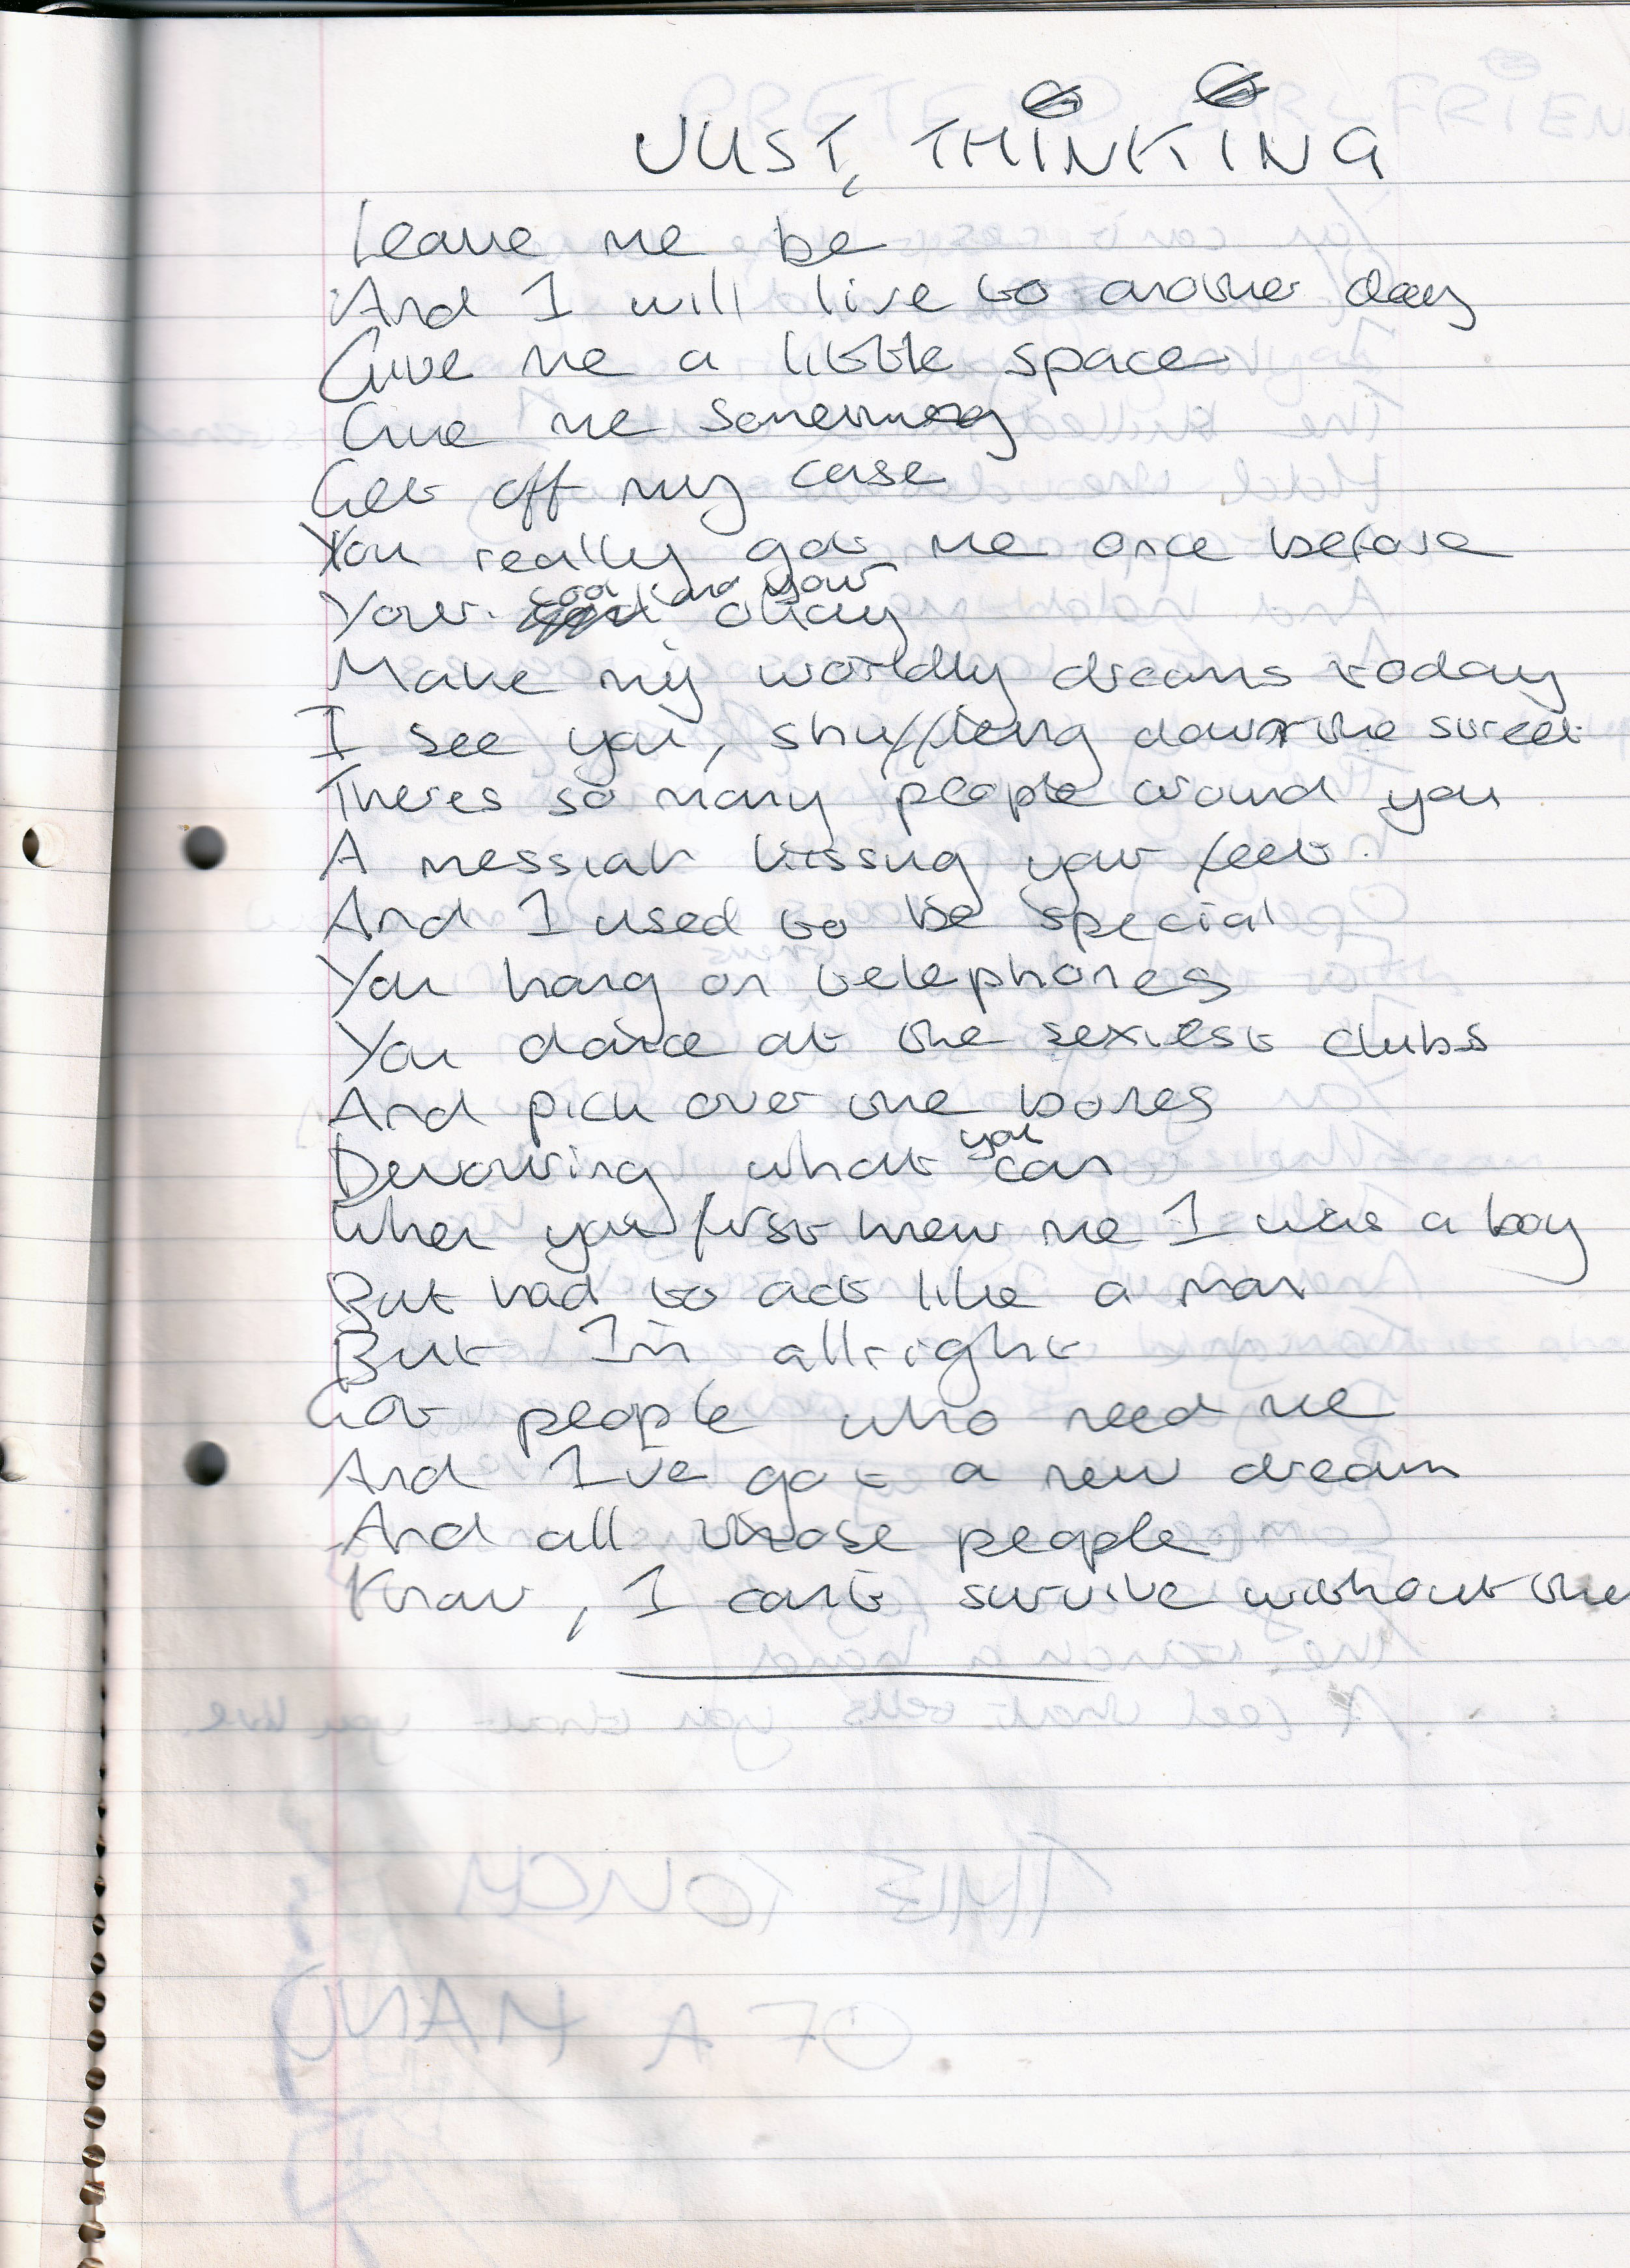 JUST, THINKING
Leave me be
And I will live to another day
Give me a little space
Give me something
Get off my case
You really got me once before
Your cool and your okay
Make my worldly dreams today
I see you, shuffling down the street
Theres so many people around you
A messiah kissing your feet.
And I used to be special
You hang on telephones
You dance at the sexiest clubs
And pick over the bones
Devouring what you can
When you first knew me I was a boy
But had to act like a man
But Im allright
Got people who need me
And I've got a new dream
And all those people
Know, I can't survive without